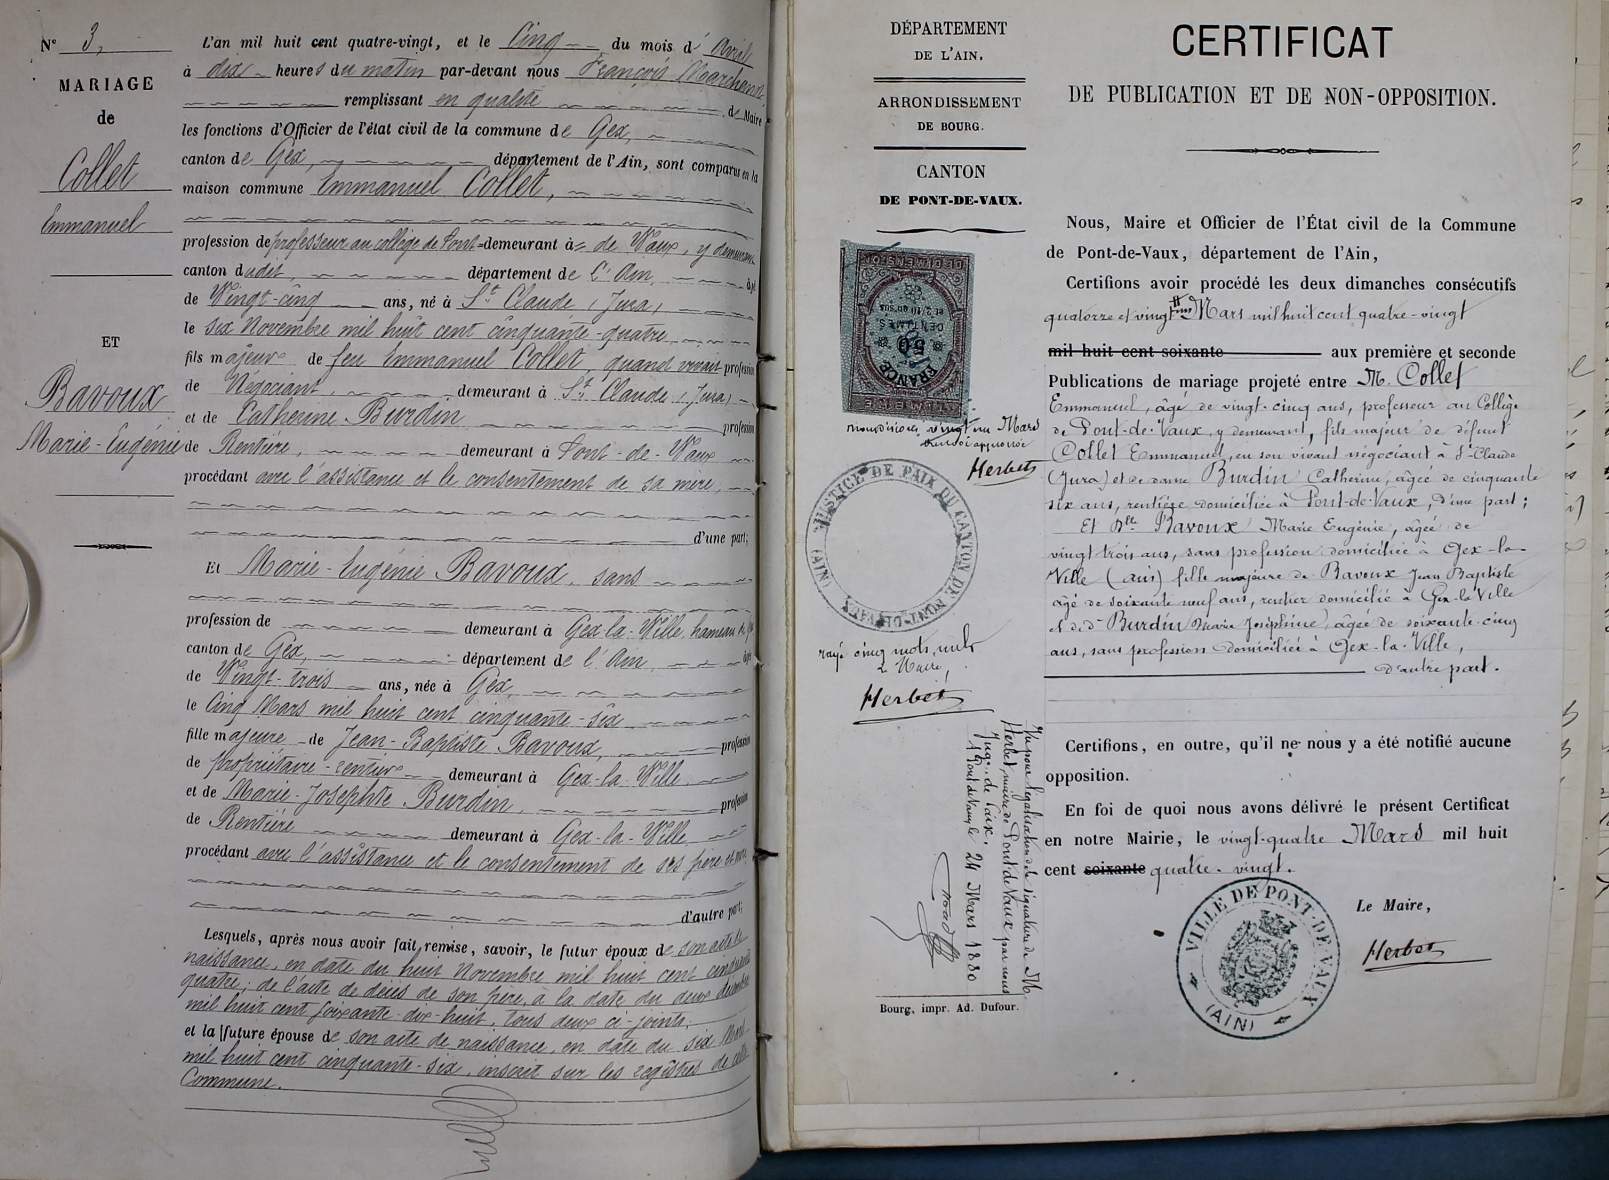 N° 3,
MARIAGE
de
Collet
Emmanuel
ET
Bavoux
Marie-Eugénie
L'an mil huit cent quatre-vingt, et le Cinq du mois d'Avril
à dix heures du matin par-devant nous François Marchand,
remplissant en qualité de Maire
les fonctions d'Officier de l'état civil de la commune de Gex,
canton de Gex, département de l'Ain, sont comparus en la
maison commune Emmanuel Collet,
profession de professeur au collège de Pont= demeurant à = de Vaux, y demeurant
canton dudit, département de l'Ain, âgé
de Vingt-cinq ans, né à St Claude (Jura)
le six Novembre mil huit cent cinquante-quatre
fils majeur de feu Emmanuel Collet, quand vivait profession
de Négociant, demeurant à St Claude (Jura)
et de Catherine Burdin profession
de Rentière, demeurant à Pont-de-Vaux
procédant avec l'assistance et le consentement de sa mère,
d'une part;
Et Marie-Eugénie Bavoux, sans
profession de demeurant à Gex-la-Ville, hameau de Gex
canton de Gex, département de l'Ain, âgée
de Vingt-trois ans, née à Gex,
le Cinq Mars mil huit cent cinquante-six
fille majeure de Jean-Baptiste Bavoux, profession
de propriétaire-rentier demeurant à Gex-la-Ville
et de Marie-Josephte Burdin, profession
de Rentière demeurant à Gex-la-Ville
procédant avec l'assistance et le consentement de ses père et mère,
d'autre part;
Lesquels, après nous avoir fait remise, savoir, le futur époux de son acte de
naissance, en date du huit Novembre mil huit cent cinquante
quatre; de l'acte de décès de son père, à la date du deux décembre
mil huit cent soixante-dix-huit, tous deux ci-joints,
et la future épouse de son acte de naissance, en date du six Mars
mil huit cent cinquante-six, inscrit sur les registres de cette
Commune.
DÉPARTEMENT
DE L'AIN.
ARRONDISSEMENT
DE BOURG.
CANTON
DE PONT-DE-VAUX.
DE DIMENSION
et 2/10 en sus
CENTIMES
50
FRANCE
vingt un Mars
approuvé
Herbet
JUSTICE DE PAIX DU CANTON DE PONT-DE-VAUX (AIN)
rayé cinq mots nuls
Le Maire,
Herbet
Vu pour légalisation de la signature de M.
Herbet, maire de Pont de Vaux par nous
Juge de Paix.
A Pont de Vaux le 24 Mars 1880
Bourg, impr. Ad. Dufour.
CERTIFICAT
DE PUBLICATION ET DE NON-OPPOSITION.
Nous, Maire et Officier de l'État civil de la Commune
de Pont-de-Vaux, département de l'Ain,
Certifions avoir procédé les deux dimanches consécutifs
quatorze et vingt Mars mil huit cent quatre-vingt
mil huit cent soixante aux première et seconde
Publications de mariage projeté entre M. Collet
Emmanuel, âgé de vingt-cinq ans, professeur au Collège
de Pont-de-Vaux, y demeurant, fils majeur de défunt
Collet Emmanuel, en son vivant négociant à St-Claude
(Jura) et de dame Burdin Catherine, âgée de cinquante
six ans, rentière domiciliée à Pont-de-Vaux, d'une part;
Et Dlle Bavoux Marie Eugénie, âgée de
vingt trois ans, sans profession domiciliée à Gex-la-
Ville (ain) fille majeure de Bavoux Jean Baptiste
âgé de soixante neuf ans, rentier domicilié à Gex-la-Ville
et de de Burdin Marie Josephine, âgée de soixante-cinq
ans, sans profession domiciliée à Gex-la-Ville,
d'autre part.
Certifions, en outre, qu'il ne nous y a été notifié aucune
opposition.
En foi de quoi nous avons délivré le présent Certificat
en notre Mairie, le vingt-quatre Mars mil huit
cent soixante quatre-vingt.
Le Maire,
Herbet
VILLE DE PONT-DE-VAUX
(AIN)